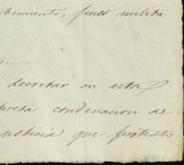 bimiento, pues milita
decretar en esta
presa condenacion de
justicia que protesto